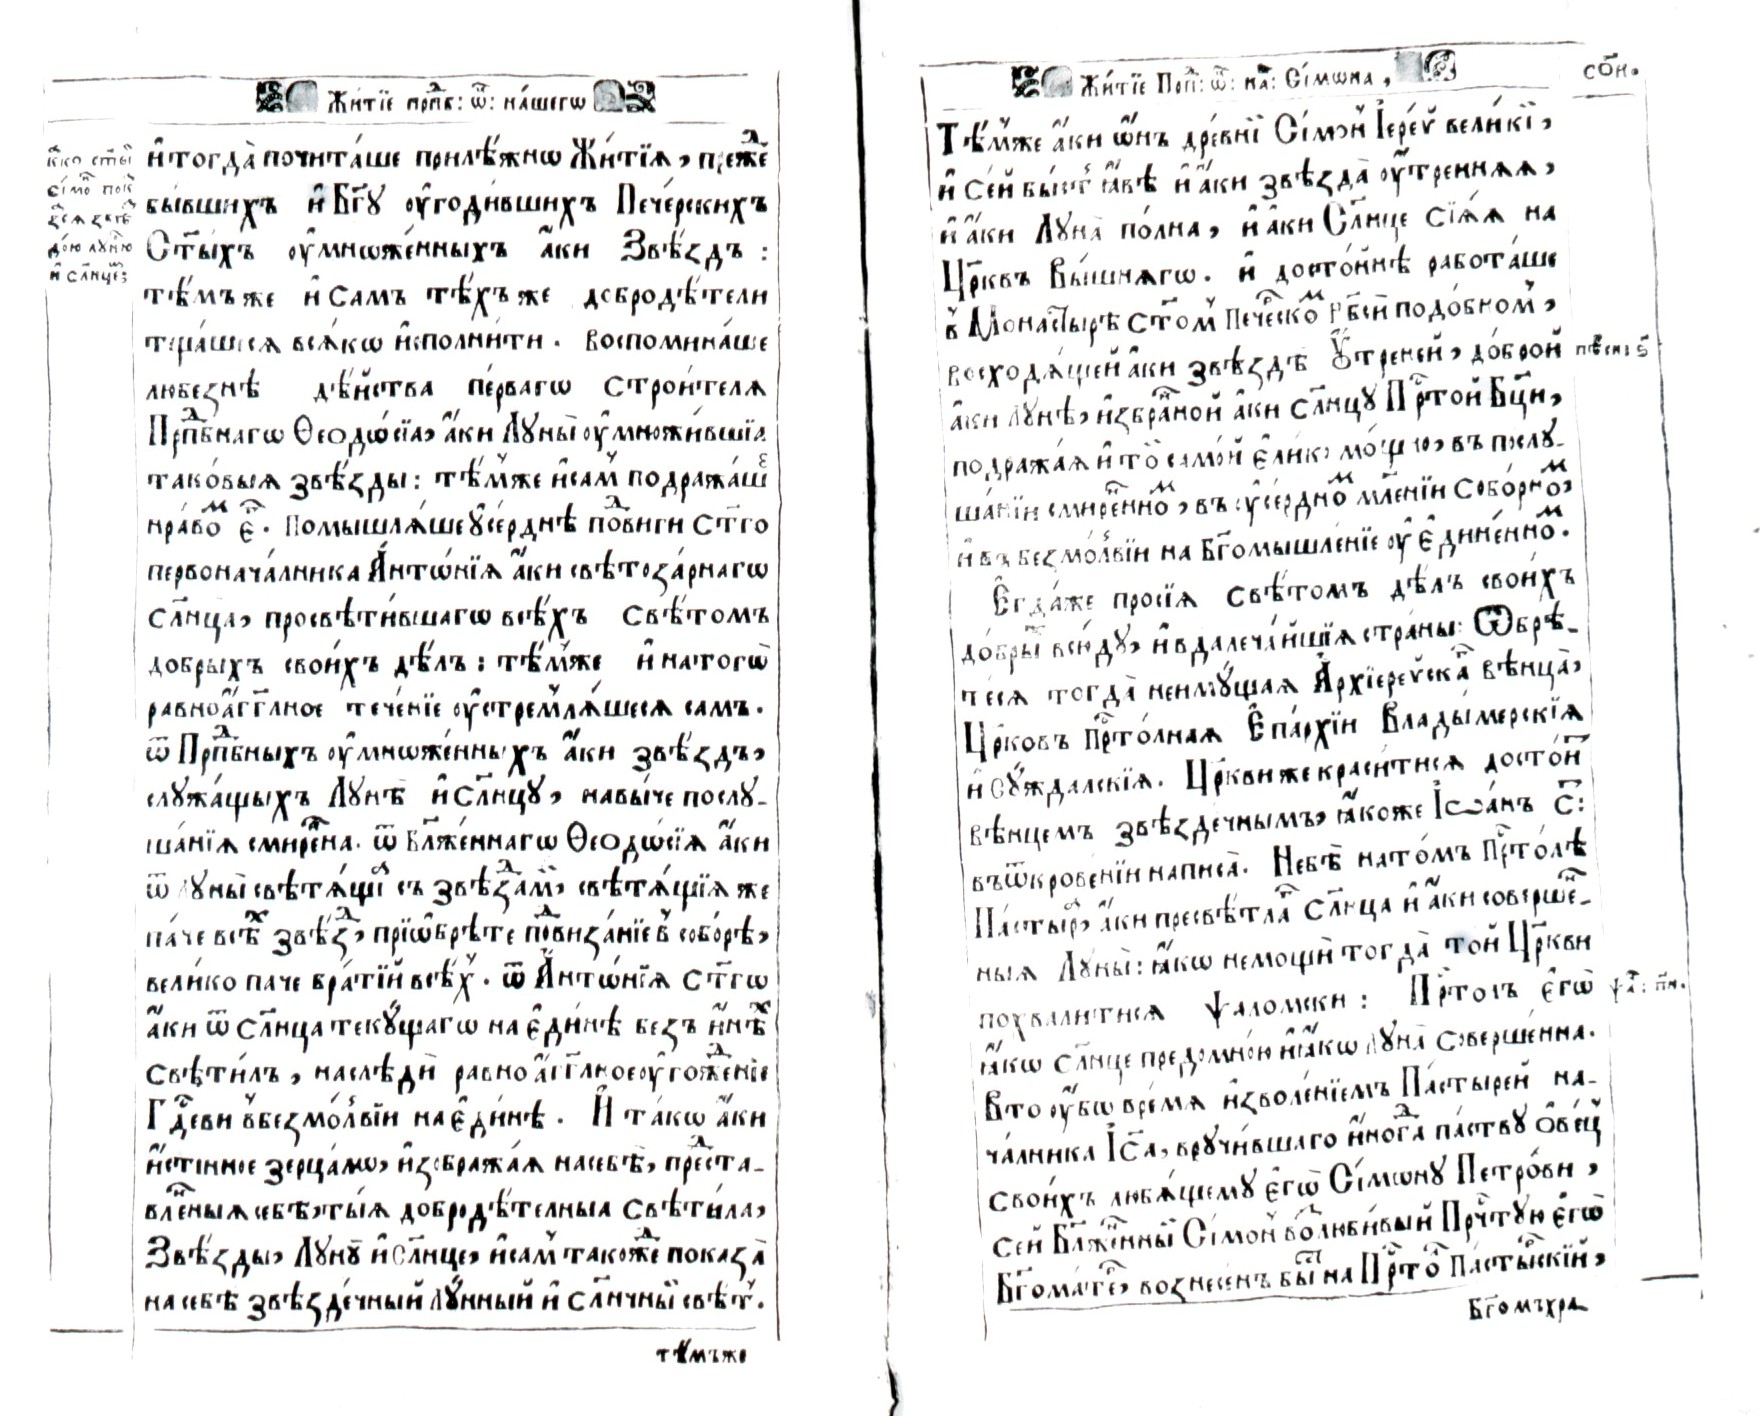 Жи́тїе прпⷣб: ѿ: на́шегѡ
ꙗ҆́кѡ ст҃ы́й
сі́мѡⷩ҇
до́ю лꙋнно́ю
и҆ сл҃нцеⷨ:
и҆ тогда̀ почита́ше прилѣ́жнѡ Жи́тїѧ, пре́жⷣе
бы́вшихъ и҆ Бг҃ꙋ оу҆годи́вшихъ Пече́рскихъ
Ст҃ы́хъ оу҆мно́же́нныхъ а҆́ки Звѣ́здъ :
тѣ́мъже и҆ самъ тѣ́хъже добродѣ́тели
тща́шесѧ всѧ́кѡ и҆спо́лнити . Воспомина́ше
любе́знѣ дѣ́йства пе́рвагѡ строи́телѧ
Прпⷣбнагѡ Ѳеодѡ́сїа, а҆́ки Лꙋны̀ оу҆мно́жившїа
тако́выѧ звѣ́зды : тѣ́мже и҆са́мъ подража́шⷷ
нра́воⷨ є҆гѡ̀ . Помышлѧ́ше оу҆се́рднѣ по́ⷣвиги ст҃го
первонача́лника А҆нтѡ́нїѧ а҆́ки свѣтоза́рнагѡ
сл҃нца, просвѣти́вшагѡ всѣ́хъ свѣ́томъ
до́брыхъ свои́хъ дѣ́лъ : тѣ́мже и҆ на тогѡ̀
равноа́гг҃лное тече́нїе оу҆стремлѧ́шесѧ самъ .
ѿ Прпⷣбныхъ оу҆мно́же́нныхъ а҆́ки звѣ́здъ,
слꙋжа́щыхъ Лꙋнѣ̀ и҆ сл҃нцꙋ, навы́че послꙋ-
ша́нїѧ смире́нна . ѿ Бл҃же́ннагѡ Ѳеодѡ́сїѧ а҆́ки
ѿ лꙋны̀ свѣтѧ́щїѧ съ звѣзⷣа́ми, свѣтѧ́щїѧ же
па́че всѣⷯ звѣ́зⷣ, прїѡбрѣ́те по́ⷣвиза́нїе в̾ собо́рѣ,
вели́ко паче бра́тїй всѣ́хъ . ѿ А҆нтѡ́нїѧ ст҃гѡ
а҆́ки ѿ сл҃нца текꙋ́щагѡ на є҆ди́нѣ безъ и҆нѣⷯ
свѣти́лъ , наслѣ́ди равноа́гг҃лное оу҆гожⷣе́нїе
Гдⷭ҇еви в̾ безмо́лвїи на є҆ди́нѣ . И҆ та́кѡ а҆́ки
и҆́стинное зерца́ло, и҆зобража́ѧ на себѣ̀, преⷣста-
вле́нныѧ себѣ̀, ты́ѧ добродѣ́телныѧ свѣти́ла,
Звѣ́зды, Лꙋнꙋ̀ и҆ Сл҃нце, и҆са́мъ тако́жⷣе показа̀
на себѣ̀ звѣзде́чный лꙋ́нный и҆ сл҃ничный свѣ́тъ .
тѣ́мъже
Жи́тїе Прпⷣ: ѿ: на́: Сі́мѡна ,
сои҃ .
Тѣ́мже а҆́ки ѡ҆́нъ дре́внїй Сі́мѡнъ І҆ере́й вели́кїй,
и҆ се́й бы́сть ꙗ҆́вѣ и҆ а҆́ки звѣзда̀ оу҆́треннѧѧ,
и҆ а҆́ки Лꙋна̀ по́лна, и҆ а҆́ки Сл҃нце сїѧ́ѧ на
Цр҃квъ Вы́шнѧгѡ . и҆ досто́йнѣ работа́ше
в̾ Монастырѣ̀ ст҃о́мъ Пече́рскоⷨ всей подо́бномъ,
восходѧ́щей а҆́ки звѣздѣ̀ оу҆́треней, до́брой
а҆́ки лꙋнѣ̀, и҆збра́нной а҆́ки сл҃нцꙋ Прⷭ҇то́й Бц҃и,
подража́ѧ и҆ то̀ само́й є҆ли́кѡ мо́щно, въ послꙋ-
ша́нїи смире́нноⷨ, въ оу҆се́рдноⷨ мл҃е́нїи собо́рноⷨ,
и҆ въ безмо́лвїи на Бг҃омышле́нїе оу҆є҆дине́нноⷨ .
Є҆гда́же просїѧ̀ свѣ́томъ дѣ́лъ свои́хъ
до́брыⷯ всю́дꙋ, и҆ в̾ далеча́йшїѧ страны̀ : Ѡ҆брѣ-
те́сѧ тогда̀ неимꙋ́щаѧ А҆рхїере́йскаⷢ вѣнца̀,
Цр҃ковъ прⷭ҇то́лнаѧ Є҆па́рхїи Влады́мерскїѧ
и҆ Сꙋ́ждалскїѧ . Цр҃кви же краси́тисѧ досто́ит
вѣнцемъ звѣзде́чнымъ, ꙗ҆́коже І҆ѡа́нъ С҃т:
въ ѿкрове́нїи написа̀ . Небѣ̀ на то́мъ Прⷭ҇то́лѣ
Па́стырѧ, а҆́ки пресвѣ́тлаⷢ сл҃нца и҆ а҆́ки соверше́н-
ныѧ Лꙋны̀ : ꙗ҆́кѡ немощѝ тогда̀ то́й Цр҃кви
похвали́тисѧ ѱало́мски : Прⷭ҇то́лъ є҆гѡ̀
ꙗ҆́кѡ сл҃нце предомно́ю и҆ ꙗ҆́кѡ лꙋна̀ соверше́нна .
В̾ то оу҆́бѡ вре́мѧ и҆зволе́нїемъ Па́стырей на-
ча́лника І҆с҃а, врꙋчи́вшаго и҆ногⷣа̀ па́ствꙋ ѻ҆ве́цъ
свои́хъ любѧ́щемꙋ є҆гѡ̀ Сі́мѡнꙋ Петро́ви ,
се́й Бл҃же́нный Сі́мѡнъ бг҃олюби́вый Прчⷭ҇тꙋю є҆гѡ̀
Бг҃ома́терь, вознесе́нъ бы́сть на Прⷭ҇то́лъ Па́стырскїй,
пѣ́снь ѕ҃
ѱа́л: пи҃ .
Бг҃омъ хра